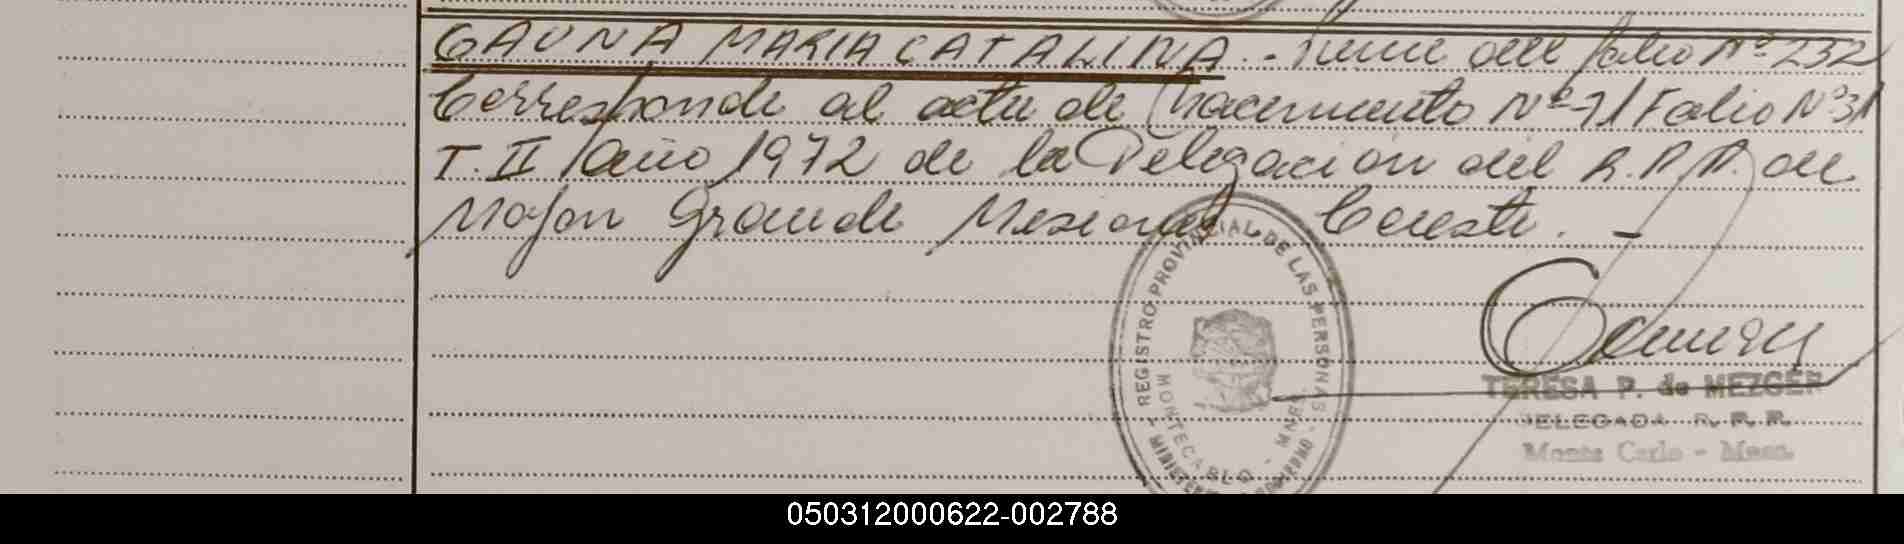 GAUNA MARIA CATALINA.- Viene del folio Nº 232
Corresponde al acta de nacimiento Nº 71 Folio Nº 31
T. II Año 1972 de la Delegación del R.P.P. de
Mojon Grande Misiones Conste. -
REGISTRO PROVINCIAL DE LAS PERSONAS
MONTECARLO - MNES
TERESA P. de MEZGER
DELEGADA R. P. P.
Monte Carlo - Mnes.
050312000622-002788